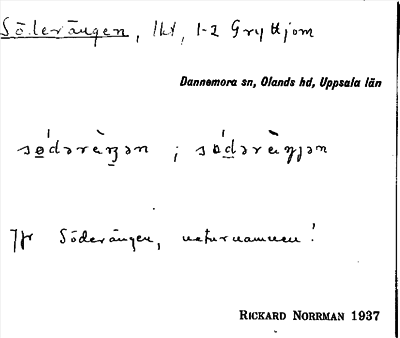 Söderängen, lht, 1-2 Gryttjom
Dannemora sn, Olands hd, Uppsala län
sø̀dəräŋən ; sødəräŋjən
Jfr Söderängen, naturnamnen!
RICKARD NORRMAN 1937